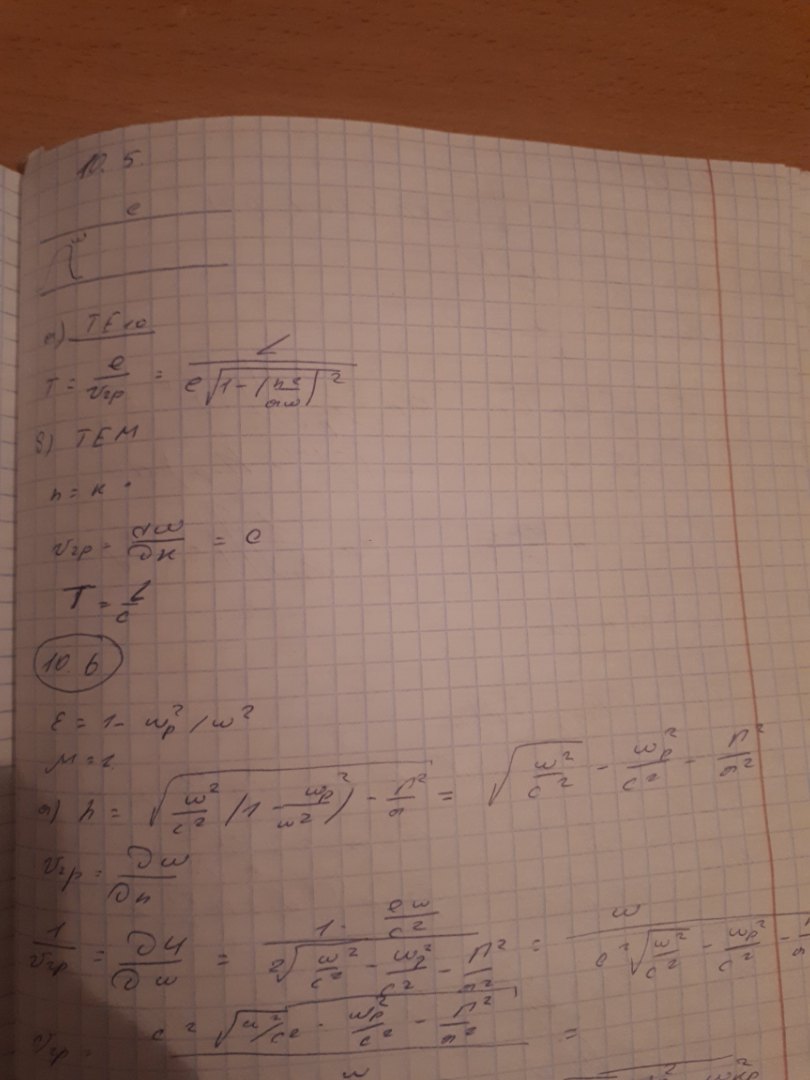 10.5.
e
а) TE10
T = e/vгр = L / (c√(1 - (πc/aω)²))
б) TEM
h = к
vгр = ∂ω/∂к = c
T = L/c
10.6
ε = 1 - ωp²/ω²
а) h = √(ω²/c² (1 - ωp²/ω²) - π²/a) = √(ω²/c²) - ωp²/c² - π²/a²
vгр = ∂ω/∂h
1/vгр = ∂h/∂ω = (1 · 2ω/c²) / (2√(ω²/c² - ωp²/c² - π²/a²)) = ω / (c²√(ω²/c² - ωp²/c² -
vгр = c²√(ω²/c² - ωp²/c² - π²/a²) / ω =